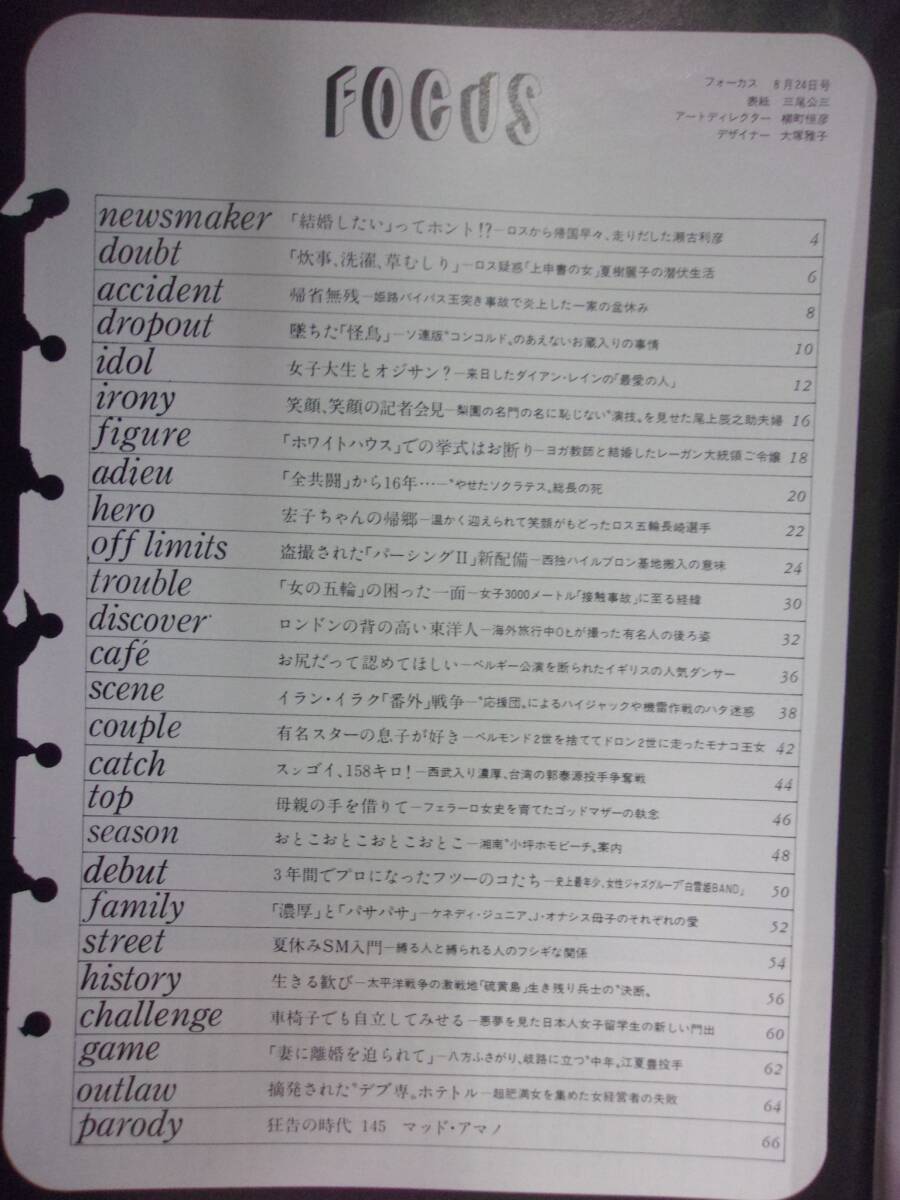 FOCUS
フォーカス 8月24日号
表紙 三尾公三
アートディレクター 柳町恒彦
デザイナー 大塚雅子
newsmaker 「結婚したい」ってホント!?―ロスから帰国早々、走りだした瀬古利彦 4
doubt 「炊事、洗濯、草むしり」―ロス疑惑「上申書の女」夏樹麗子の潜伏生活 6
accident 帰省無残―姫路バイパス玉突き事故で炎上した一家の盆休み 8
dropout 墜ちた「怪鳥」―ソ連版〝コンコルド〟のあえないお蔵入りの事情 10
idol 女子大生とオジサン?―来日したダイアン・レインの「最愛の人」 12
irony 笑顔、笑顔の記者会見―梨園の名門の名に恥じない〝演技〟を見せた尾上辰之助夫婦 16
figure 「ホワイトハウス」での挙式はお断り―ヨガ教師と結婚したレーガン大統領ご令嬢 18
adieu 「全共闘」から16年…―〝やせたソクラテス〟総長の死 20
hero 宏子ちゃんの帰郷―温かく迎えられて笑顔がもどったロス五輪長崎選手 22
off limits 盗撮された「パーシングⅡ」新配備―西独ハイルブロン基地搬入の意味 24
trouble 「女の五輪」の困った一面―女子3000メートル「接触事故」に至る経緯 30
discover ロンドンの背の高い東洋人―海外旅行中OLが撮った有名人の後ろ姿 32
café お尻だって認めてほしい―ベルギー公演を断られたイギリスの人気ダンサー 36
scene イラン・イラク「番外」戦争―〝応援団〟によるハイジャックや機雷作戦のハタ迷惑 38
couple 有名スターの息子が好き―ベルモンド2世を捨ててドロン2世に走ったモナコ王女 42
catch スンゴイ、158キロ!―西武入り濃厚、台湾の郭泰源投手争奪戦 44
top 母親の手を借りて―フェラーロ女史を育てたゴッドマザーの執念 46
season おとこおとこおとこおとこ―湘南〝小坪ホモビーチ〟案内 48
debut 3年間でプロになったフツーのコたち―史上最年少、女性ジャズグループ「白雪姫BAND」 50
family 「濃厚」と「パサパサ」―ケネディ・ジュニア、J・オナシス母子のそれぞれの愛 52
street 夏休みSM入門―縛る人と縛られる人のフシギな関係 54
history 生きる歓び―太平洋戦争の激戦地「硫黄島」生き残り兵士の〝決断〟 56
challenge 車椅子でも自立してみせる―悪夢を見た日本人女子留学生の新しい門出 60
game 「妻に離婚を迫られて」―八方ふさがり、岐路に立つ〝中年〟江夏豊投手 62
outlaw 摘発された〝デブ専〟ホテトル―超肥満女を集めた女経営者の失敗 64
parody 狂告の時代 145 マッド・アマノ 66